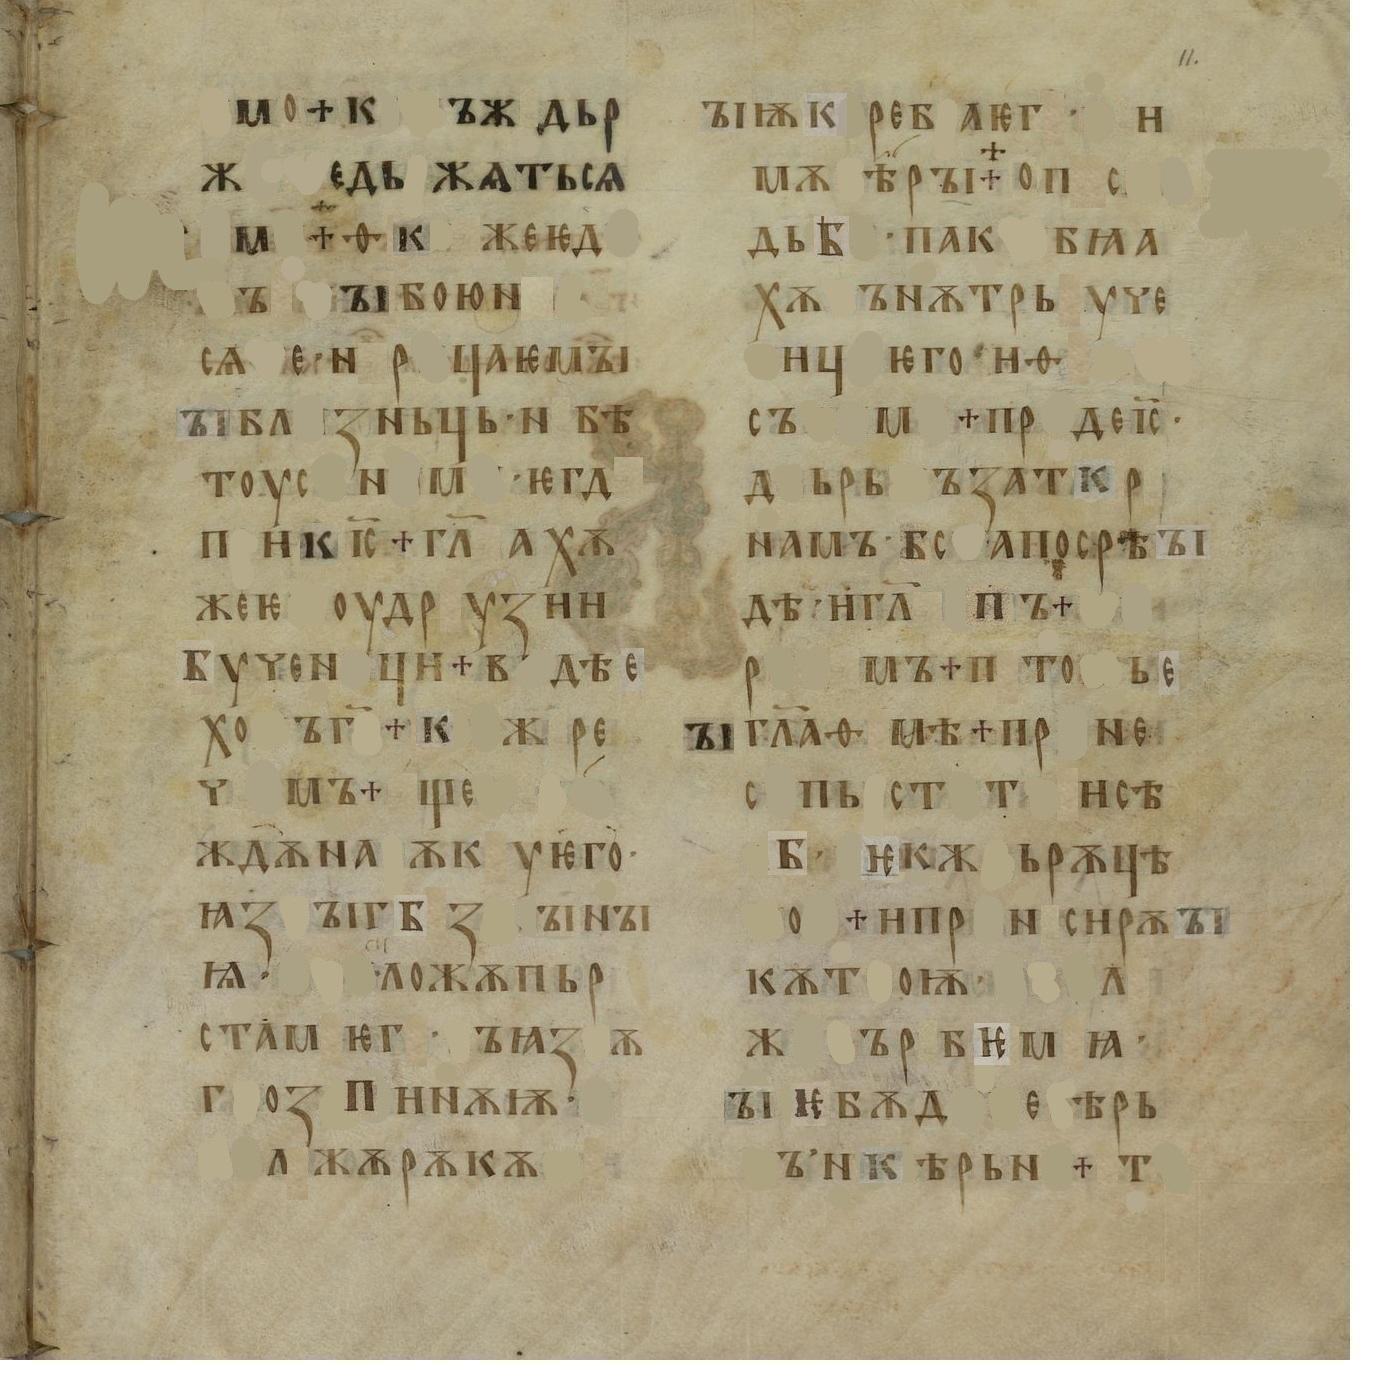 мо+к ъж дьр
ж едь жѧтьсѧ
м +ѳ к жеѥд
ъ ъıбоюн
сѧ е·н р цаѥмъı
ъıбл зньць·н бѣ
тоус н м ·ѥгд
п нк іс+гл ахѫ
жеѥ оудр узнн
бууен цн+в дѣе
хо ъг +к ж ре
у мъ+ ще
ждѫна ѫк уѥго·
ꙗз ъıгб з ъıнъı
ꙗ· ложѫпьр
стам ѥг · ъꙗз ѫ
г оз п ннѫѭ·
л жѫрѫкѫ
ъıѭк реб аѥг · н
мѫ ѣръı+оп с
дьб ·пак бꙗа
хѫ ънѫтрь ууе
нц ѥго·нѳ
съ м +пр деіс·
д ьрь ъзатк р
намъ·бс апосрѣъı
дѣ·нгл п ъ+
р мъ+п то ье
ъıглаѳ мѣ+пр не
с пь ст т нсѣ
б· ѥкж ьрѫцѣ
о +нпр н снрѫъı
кѫт оѭ· л
ж ър бѥм ꙗ·
ъı ѥбѫд е ѣрь
ъ·нк ѣрьн + т